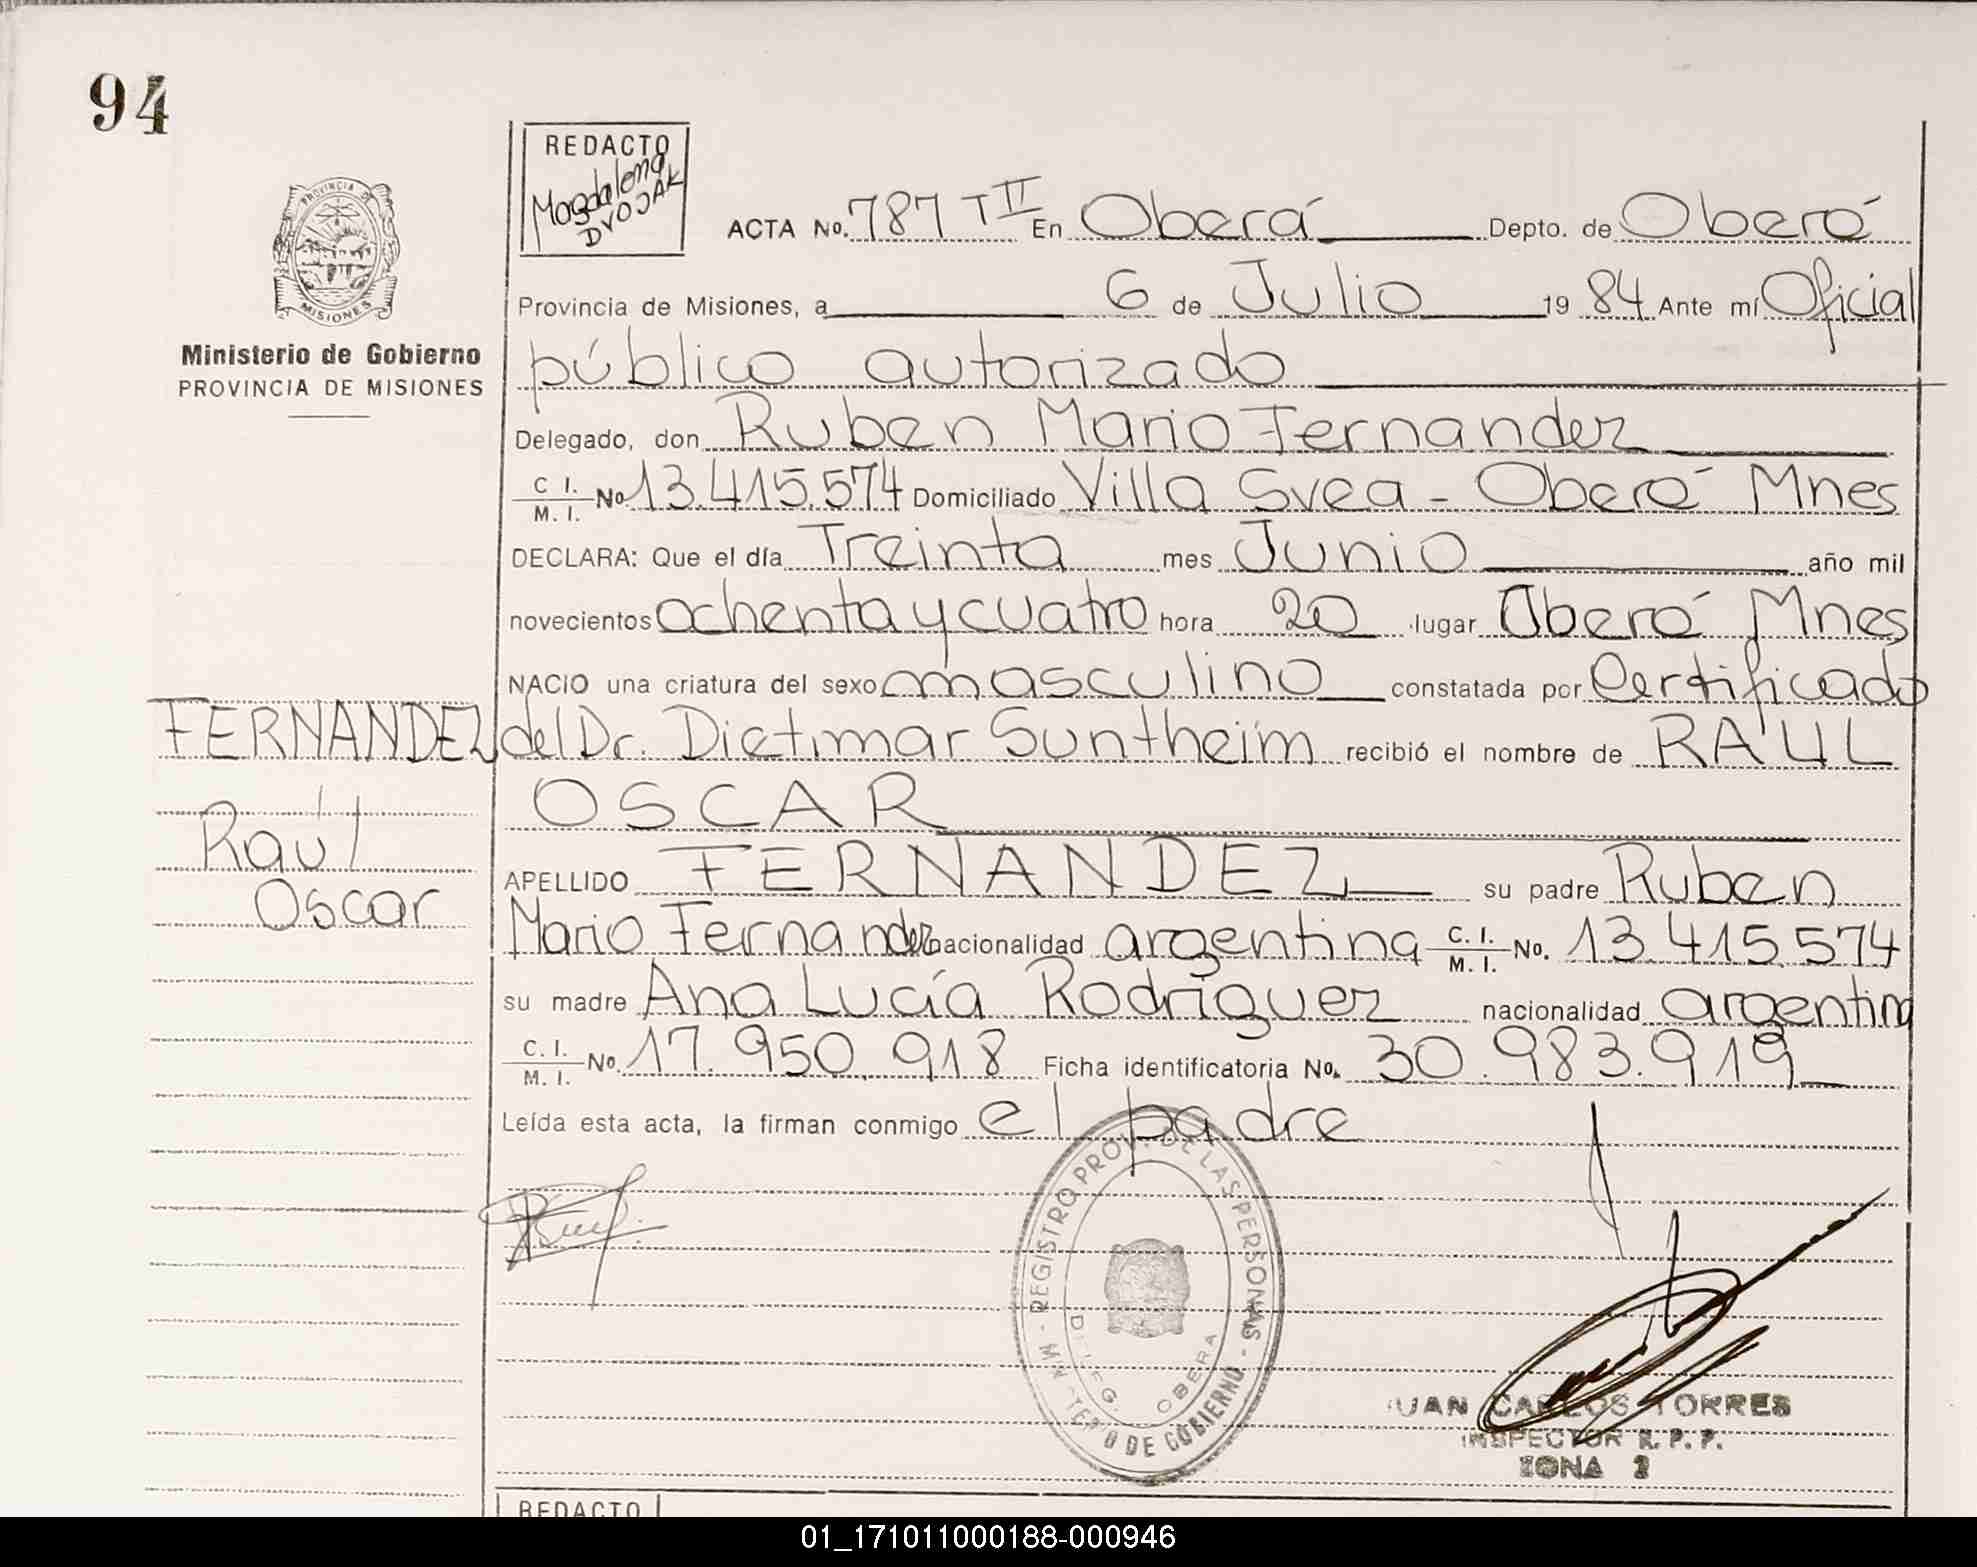 94
REDACTO
Magdalena
DVOJAK
ACTA No. 787 T II En Oberá Depto. de Oberá
PROVINCIA DE
MISIONES
Provincia de Misiones, a 6 de Julio 19 84 Ante mí Oficial
Ministerio de Gobierno
PROVINCIA DE MISIONES
público autorizado
Delegado, don Ruben Mario Fernandez
C. I. M. I. No 13.415.574 Domiciliado Villa Svea - Oberá Mnes
DECLARA: Que el día Treinta mes Junio año mil
novecientos ochenta y cuatro hora 20 lugar Oberá Mnes
NACIO una criatura del sexo masculino constatada por Certificado
FERNANDEZ del Dr. Dietmar Suntheim recibió el nombre de RAUL
OSCAR
Raúl
Oscar
APELLIDO FERNANDEZ su padre Ruben
Mario Fernandez nacionalidad argentina C. I. M. I. No. 13.415.574
su madre Ana Lucía Rodríguez nacionalidad argentina
C. I. M. I. No. 17.950.918 Ficha identificatoria No. 30.983.919
Leída esta acta, la firman conmigo el padre
REGISTRO PROV. DE LAS PERSONAS
DELEG. OBERA
DE GOBIERNO
JUAN CARLOS TORRES
INSPECTOR R. P. P.
ZONA 2
REDACTO
01_171011000188-000946